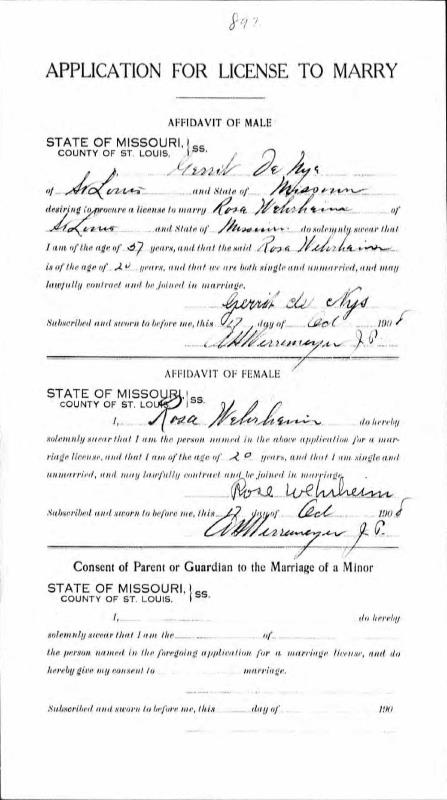 892
APPLICATION FOR LICENSE TO MARRY
AFFIDAVIT OF MALE
STATE OF MISSOURI, } SS.
COUNTY OF ST. LOUIS,
Gerrit De Nys
of St Louis and State of Missouri
desiring to procure a license to marry Rosa Wehrheim of
St Louis and State of Missouri do solemnly swear that
I am of the age of 37 years, and that the said Rosa Wehrheim
is of the age of 20 years, and that we are both single and unmarried, and may
lawfully contract and be joined in marriage.
Gerrit de Nys
Subscribed and sworn to before me, this 17 day of Oct 1908
AH Werremeyer J. P.
AFFIDAVIT OF FEMALE
STATE OF MISSOURI, } SS.
COUNTY OF ST. LOUIS,
I, Rosa Wehrheim do hereby
solemnly swear that I am the person named in the above application for a mar-
riage license, and that I am of the age of 20 years, and that I am single and
unmarried, and may lawfully contract and be joined in marriage.
Rose Wehrheim
Subscribed and sworn to before me, this 17 day of Oct 1908
AH Werremeyer J. P.
Consent of Parent or Guardian to the Marriage of a Minor
STATE OF MISSOURI, } SS.
COUNTY OF ST. LOUIS.
I, do hereby
solemnly swear that I am the of
the person named in the foregoing application for a marriage license, and do
hereby give my consent to marriage.
Subscribed and sworn to before me, this day of 190